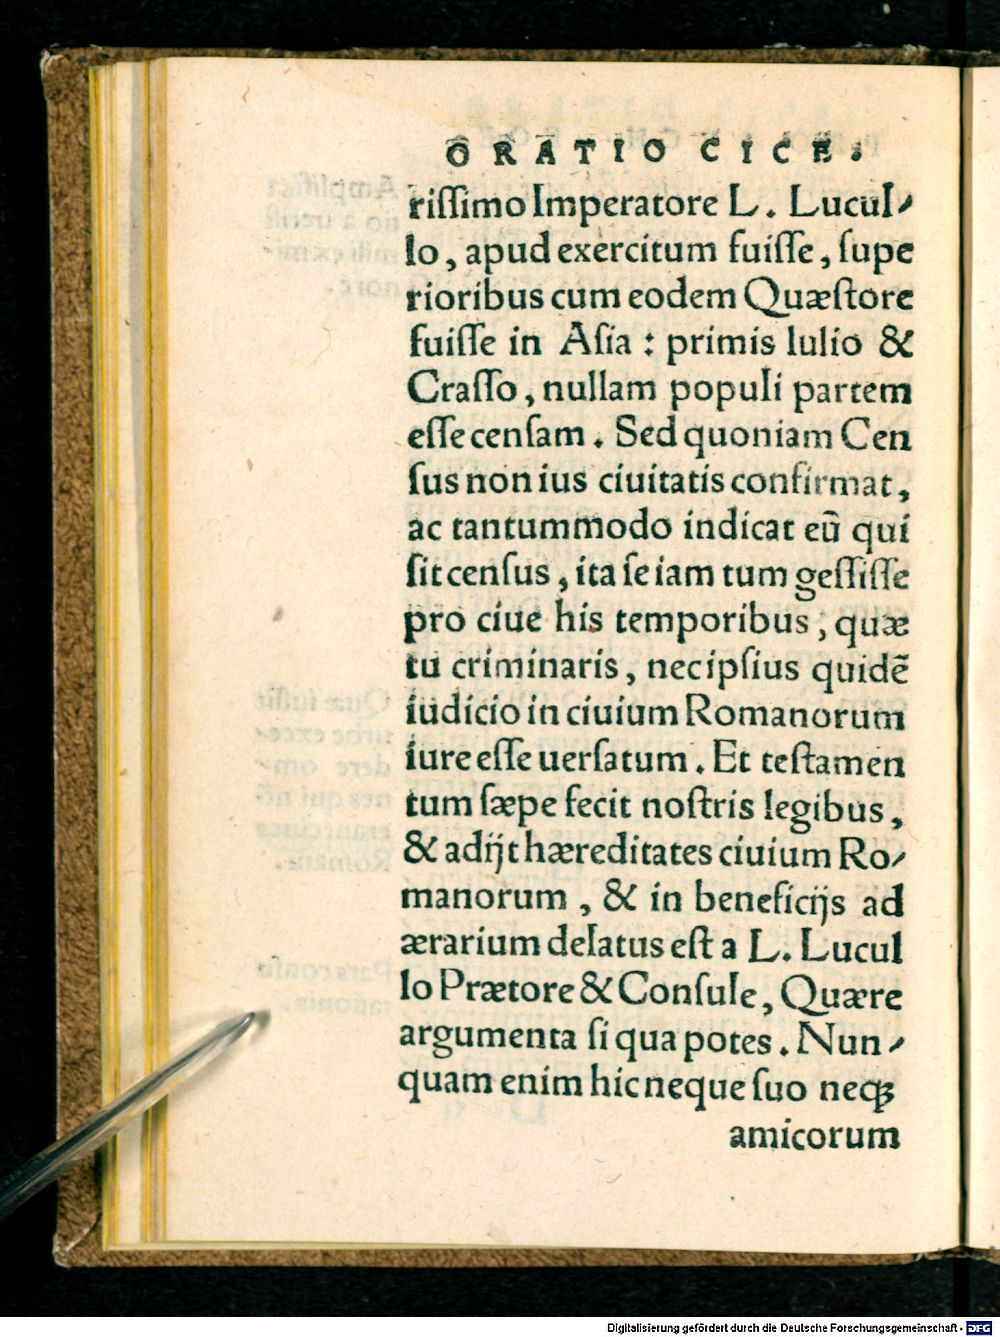 ORATIO CICE.
riſſimo Imperatore L. Lucul⸗
lo, apud exercitum fuiſſe, ſupe
rioribus cum eodem Quæſtore
fuiſſe in Aſia : primis Iulio &
Craſſo, nullam populi partem
eſſe cenſam. Sed quoniam Cen
ſus non ius ciuitatis confirmat,
ac tantummodo indicat eū qui
ſit cenſus, ita ſe iam tum geſſiſſe
pro ciue his temporibus; quæ
tu criminaris, nec ipſius quidē
iudicio in ciuium Romanorum
iure eſſe uerſatum. Et teſtamen
tum ſæpe fecit noſtris legibus,
& adijt hæreditates ciuium Ro⸗
manorum, & in beneficijs ad
ærarium delatus eſt a L. Lucul
lo Prætore & Conſule, Quære
argumenta ſi qua potes. Nun⸗
quam enim hic neque ſuo neqꝫ
amicorum
Digitalisierung gefördert durch die Deutsche Forschungsgemeinschaft - DFG